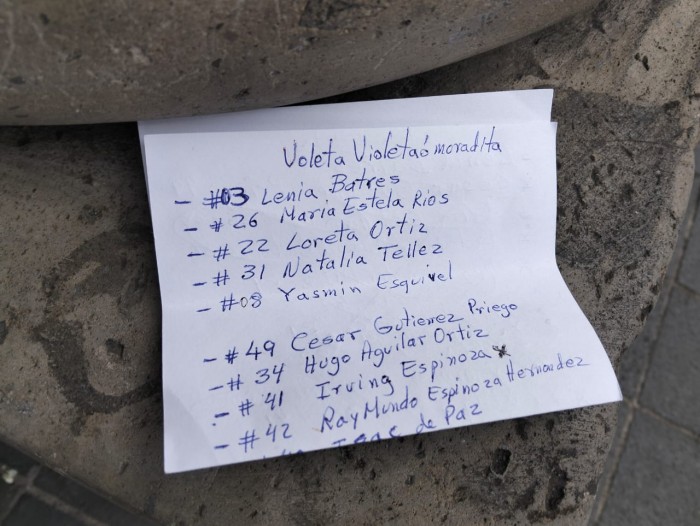 Voleta Violeta ó moradita
- #03 Lenia Batres
- #26 María Estela Ríos
- #22 Loreta Ortiz
- #31 Natalia Tellez
- #08 Yasmin Esquivel
- #49 Cesar Gutierrez Priego
- #34 Hugo Aguilar Ortiz
- #41 Irving Espinoza
- #42 RayMundo Espinoza Hernandez
de Paz